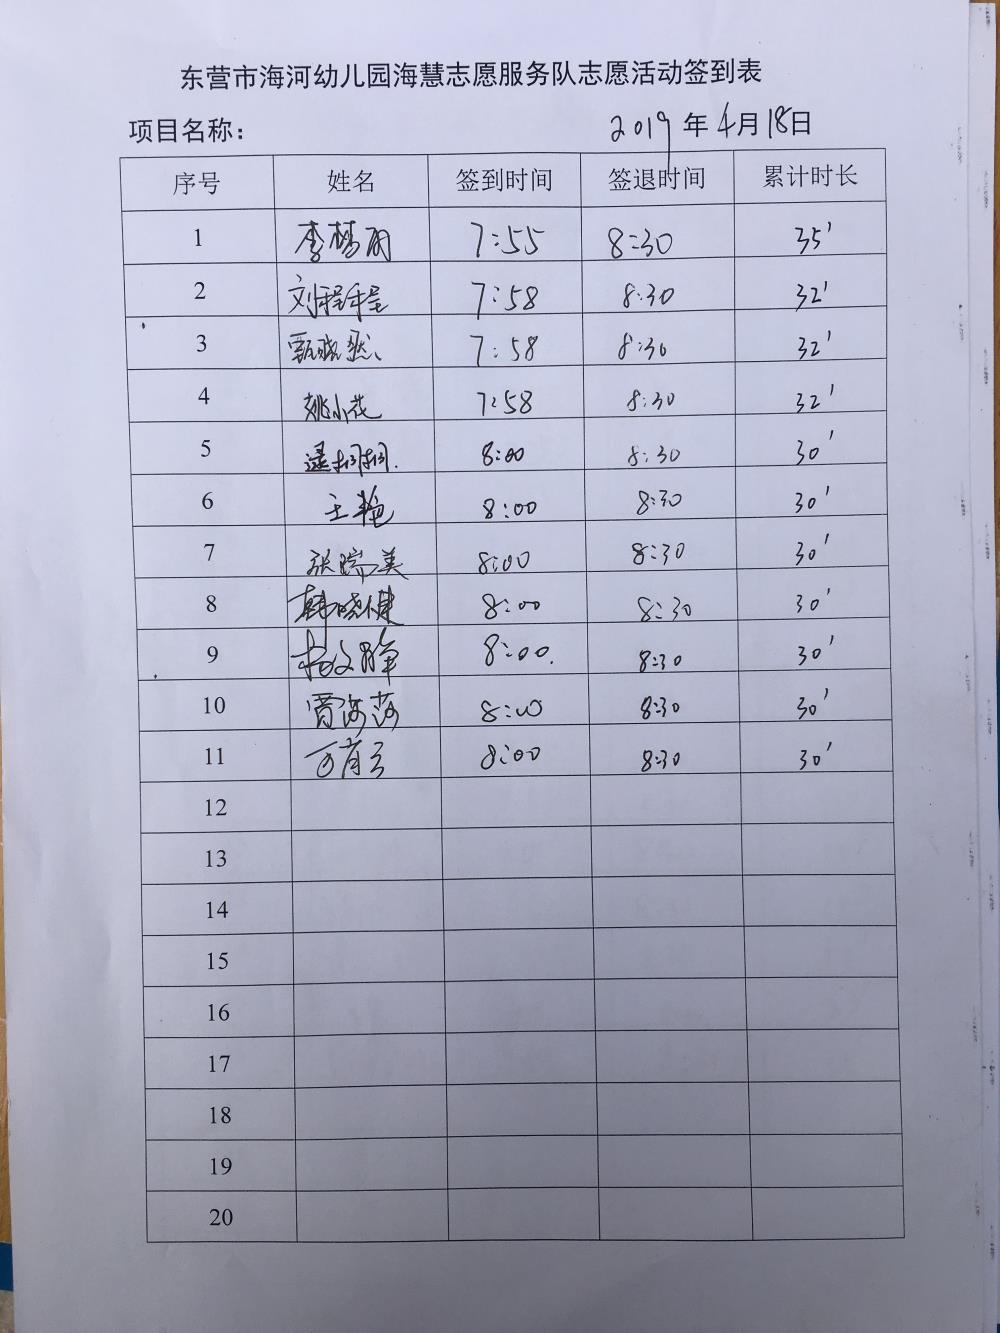 东营市海河幼儿园海慧志愿服务队志愿活动签到表
项目名称： 2019年4月18日
序号 姓名 签到时间 签退时间 累计时长
1 李梦丽 7:55 8:30 35'
2 刘程程 7:58 8:30 32'
3 甄晓然 7:58 8:30 32'
4 姚小花 7:58 8:30 32'
5 8:00 8:30 30'
6 王艳 8:00 8:30 30'
7 张瑞美 8:00 8:30 30'
8 韩晓健 8:00 8:30 30'
9 8:00. 8:30 30'
10 贾海莎 8:00 8:30 30'
11 8:00 8:30 30'
12
13
14
15
16
17
18
19
20